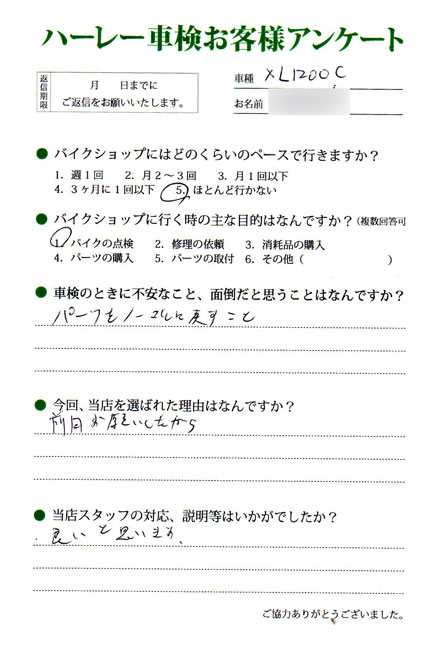 ハーレー車検お客様アンケート
返信期限
月 日までに
ご返信をお願いいたします。
車種 XL1200C
お名前
● バイクショップにはどのくらいのペースで行きますか？
1. 週1回 2. 月2〜3回 3. 月1回以下
4. 3ヶ月に1回以下 5. ほとんど行かない
● バイクショップに行く時の主な目的はなんですか？(複数回答可
1. バイクの点検 2. 修理の依頼 3. 消耗品の購入
4. パーツの購入 5. パーツの取付 6. その他 ( )
● 車検のときに不安なこと、面倒だと思うことはなんですか？
パーツをノーマルに戻すこと
● 今回、当店を選ばれた理由はなんですか？
前回お願いしたから
● 当店スタッフの対応、説明等はいかがでしたか？
良いと思います。
ご協力ありがとうございました。